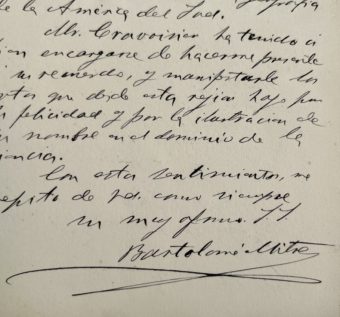 de la América del Sud.
Mr. Cravoisier ha tenido á
bien encargarse de hacerme presente
su recuerdo, y manifestarle los
votos que desde esta rejion hago por
su felicidad y por la ilustracion de
su nombre en el dominio de la
ciencia.
Con estos sentimientos, me
repito de Vd. como siempre
su muy afmo. S. S.
Bartolomé Mitre